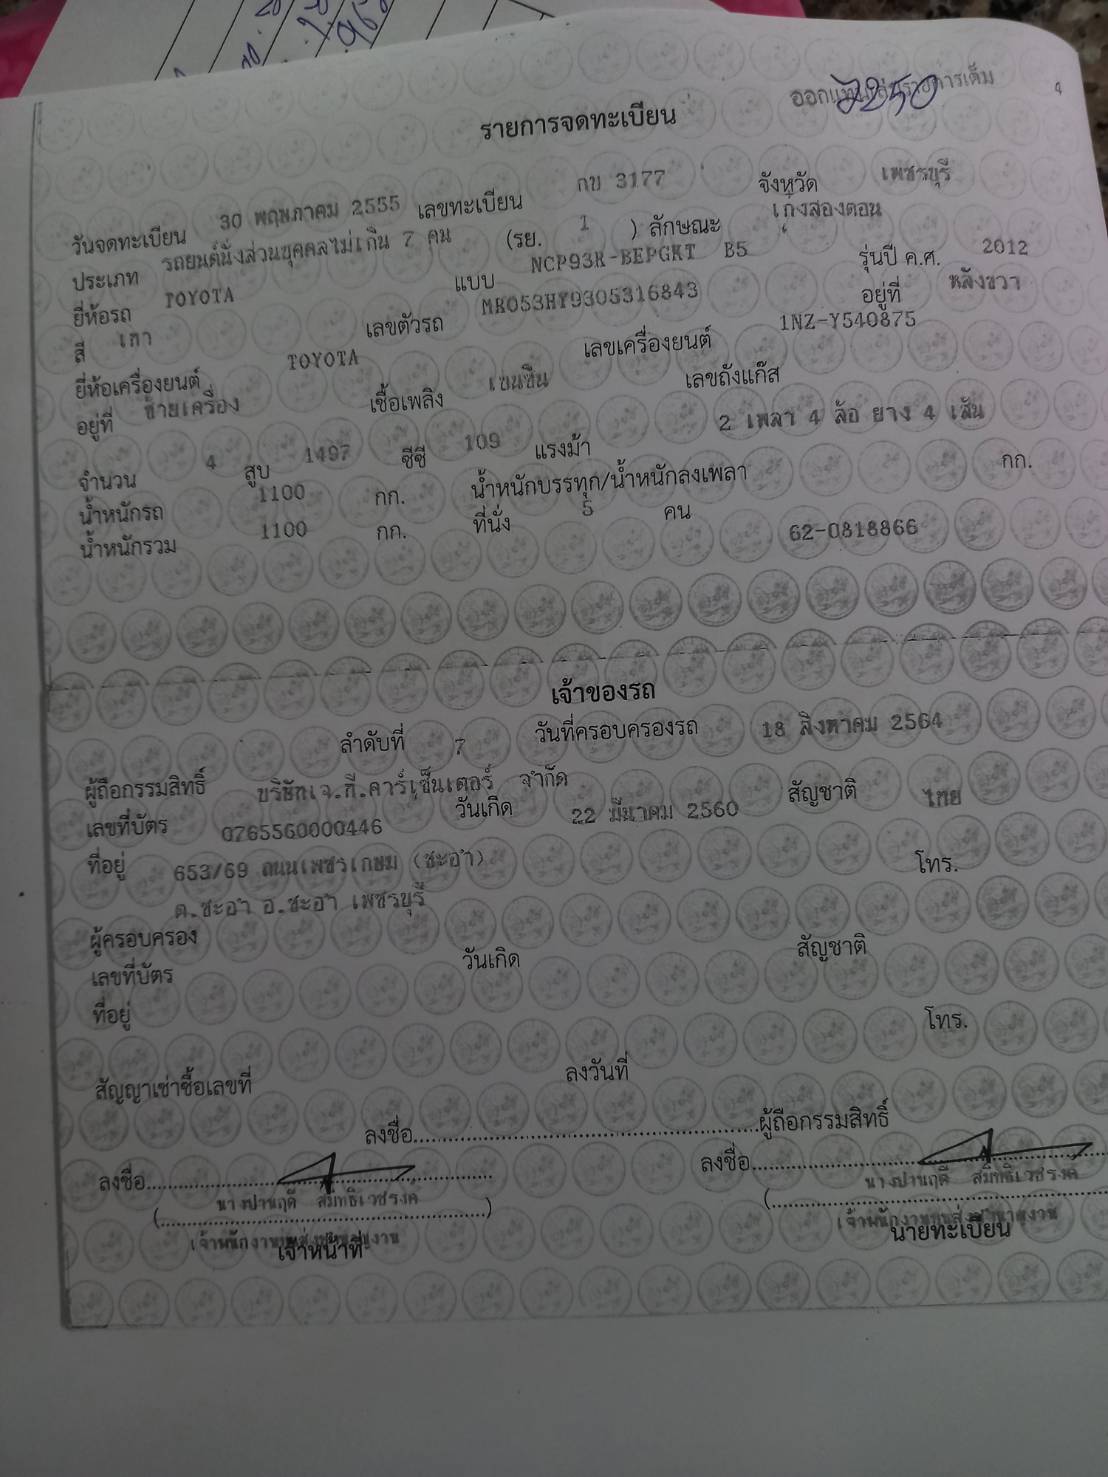 7250
ออกแทนเล่มรายการเต็ม
4
รายการจดทะเบียน
วันจดทะเบียน 30 พฤษภาคม 2555 เลขทะเบียน กข 3177 จังหวัด เพชรบุรี
ประเภท รถยนต์นั่งส่วนบุคคลไม่เกิน 7 คน (รย. 1 ) ลักษณะ เก๋งสองตอน
ยี่ห้อรถ TOYOTA แบบ NCP93R-BEPGKT B5 รุ่นปี ค.ศ. 2012
สี เทา เลขตัวรถ MR053HY9305316843 อยู่ที่ หลังขวา
ยี่ห้อเครื่องยนต์ TOYOTA เลขเครื่องยนต์ 1NZ-Y540875
อยู่ที่ ซ้ายเครื่อง เชื้อเพลิง เบนซิน เลขถังแก๊ส
จำนวน 4 สูบ 1497 ซีซี 109 แรงม้า 2 เพลา 4 ล้อ ยาง 4 เส้น
น้ำหนักรถ 1100 กก. น้ำหนักบรรทุก/น้ำหนักลงเพลา กก.
น้ำหนักรวม 1100 กก. ที่นั่ง 5 คน
62-0818866
เจ้าของรถ
ลำดับที่ 7 วันที่ครอบครองรถ 18 สิงหาคม 2564
ผู้ถือกรรมสิทธิ์ บริษัทเจ.ที.คาร์เซ็นเตอร์ จำกัด
เลขที่บัตร 0765560000446 วันเกิด 22 มีนาคม 2560 สัญชาติ ไทย
ที่อยู่ 653/69 ถนนเพชรเกษม (ชะอำ) โทร.
ต.ชะอำ อ.ชะอำ เพชรบุรี
ผู้ครอบครอง
เลขที่บัตร วันเกิด สัญชาติ
ที่อยู่ โทร.
สัญญาเช่าซื้อเลขที่ ลงวันที่
ลงชื่อ ผู้ถือกรรมสิทธิ์
ลงชื่อ ลงชื่อ
นางปานฤดี สมิทธิเวชรงค์ นางปานฤดี สมิทธิเวชรงค์
เจ้าพนักงานขนส่งชำนาญงาน เจ้าพนักงานขนส่งชำนาญงาน
เจ้าหน้าที่ นายทะเบียน